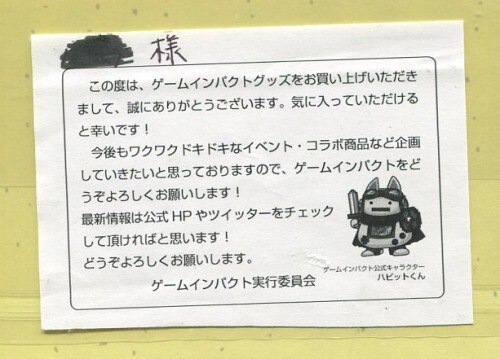 様
この度は、ゲームインパクトグッズをお買い上げいただき
まして、誠にありがとうございます。気に入っていただける
と幸いです！
今後もワクワクドキドキなイベント・コラボ商品など企画
していきたいと思っておりますので、ゲームインパクトをど
うぞよろしくお願いします！
最新情報は公式HPやツイッターをチェック
して頂ければと思います！
どうぞよろしくお願いします。
ゲームインパクト実行委員会
ゲームインパクト公式キャラクター
ハビットくん